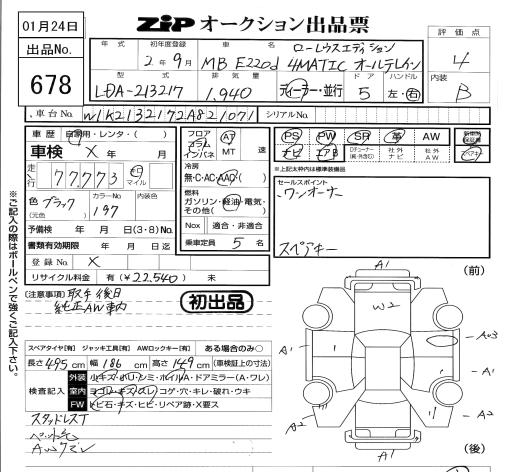 01月24日
ZiPオークション出品票
評価点
4
出品No.
678
年式
初年度登録
2年9月
車名
ローレウスエディション
MB E220d 4MATIC オールテレイン
型式
LDA-213217
排気量
1,940
ディーラー・並行
ドア
5
ハンドル
左・右
内装
B
車台No.
W1K2132172A821071
シリアルNo.
車歴 自家用・レンタ・( )
車検 X 年 月
走行 77,773 km マイル
色 ブラック
(元色)
カラーNo.
197
内装色
予備検 年 月 日(3・8)No.
書類有効期限 年 月 日迄
登録No. X
リサイクル料金 有(¥22,540) 未
フロア
コラム
インパネ
AT
MT 速
冷房
無・C・AC・AAC・( )
燃料
ガソリン・軽油・電気・
その他( )
Nox 適合・非適合
乗車定員 5 名
PS PW SR 革 AW
ナビ エアB 社外ナビ 社外AW
スペアキー
※上記枠内は標準装備品
セールスポイント
ワンオーナー
スペアキー
(注意事項) 取手後日
純正AW車内
初出品
スペアタイヤ[有] ジャッキ工具[有] AWロックキー[有] ある場合のみ○
長さ 495 cm 幅 186 cm 高さ 149 cm (車検証上の寸法)
検査記入
外装 小キズ・ホリ・トミ・ホイルA・ドアミラー(A・ワレ)
室内 ヨゴレ・キズ・スレ・コゲ・穴・キレ・破れ・ウキ
FW トビ石・キズ・ヒビ・リペア跡・X要ス
スタッドレスT
※ご記入の際はボールペンで強くご記入下さい。
(前)
A1
W2
A1
A03
A1
A2
A2
A1
(後)